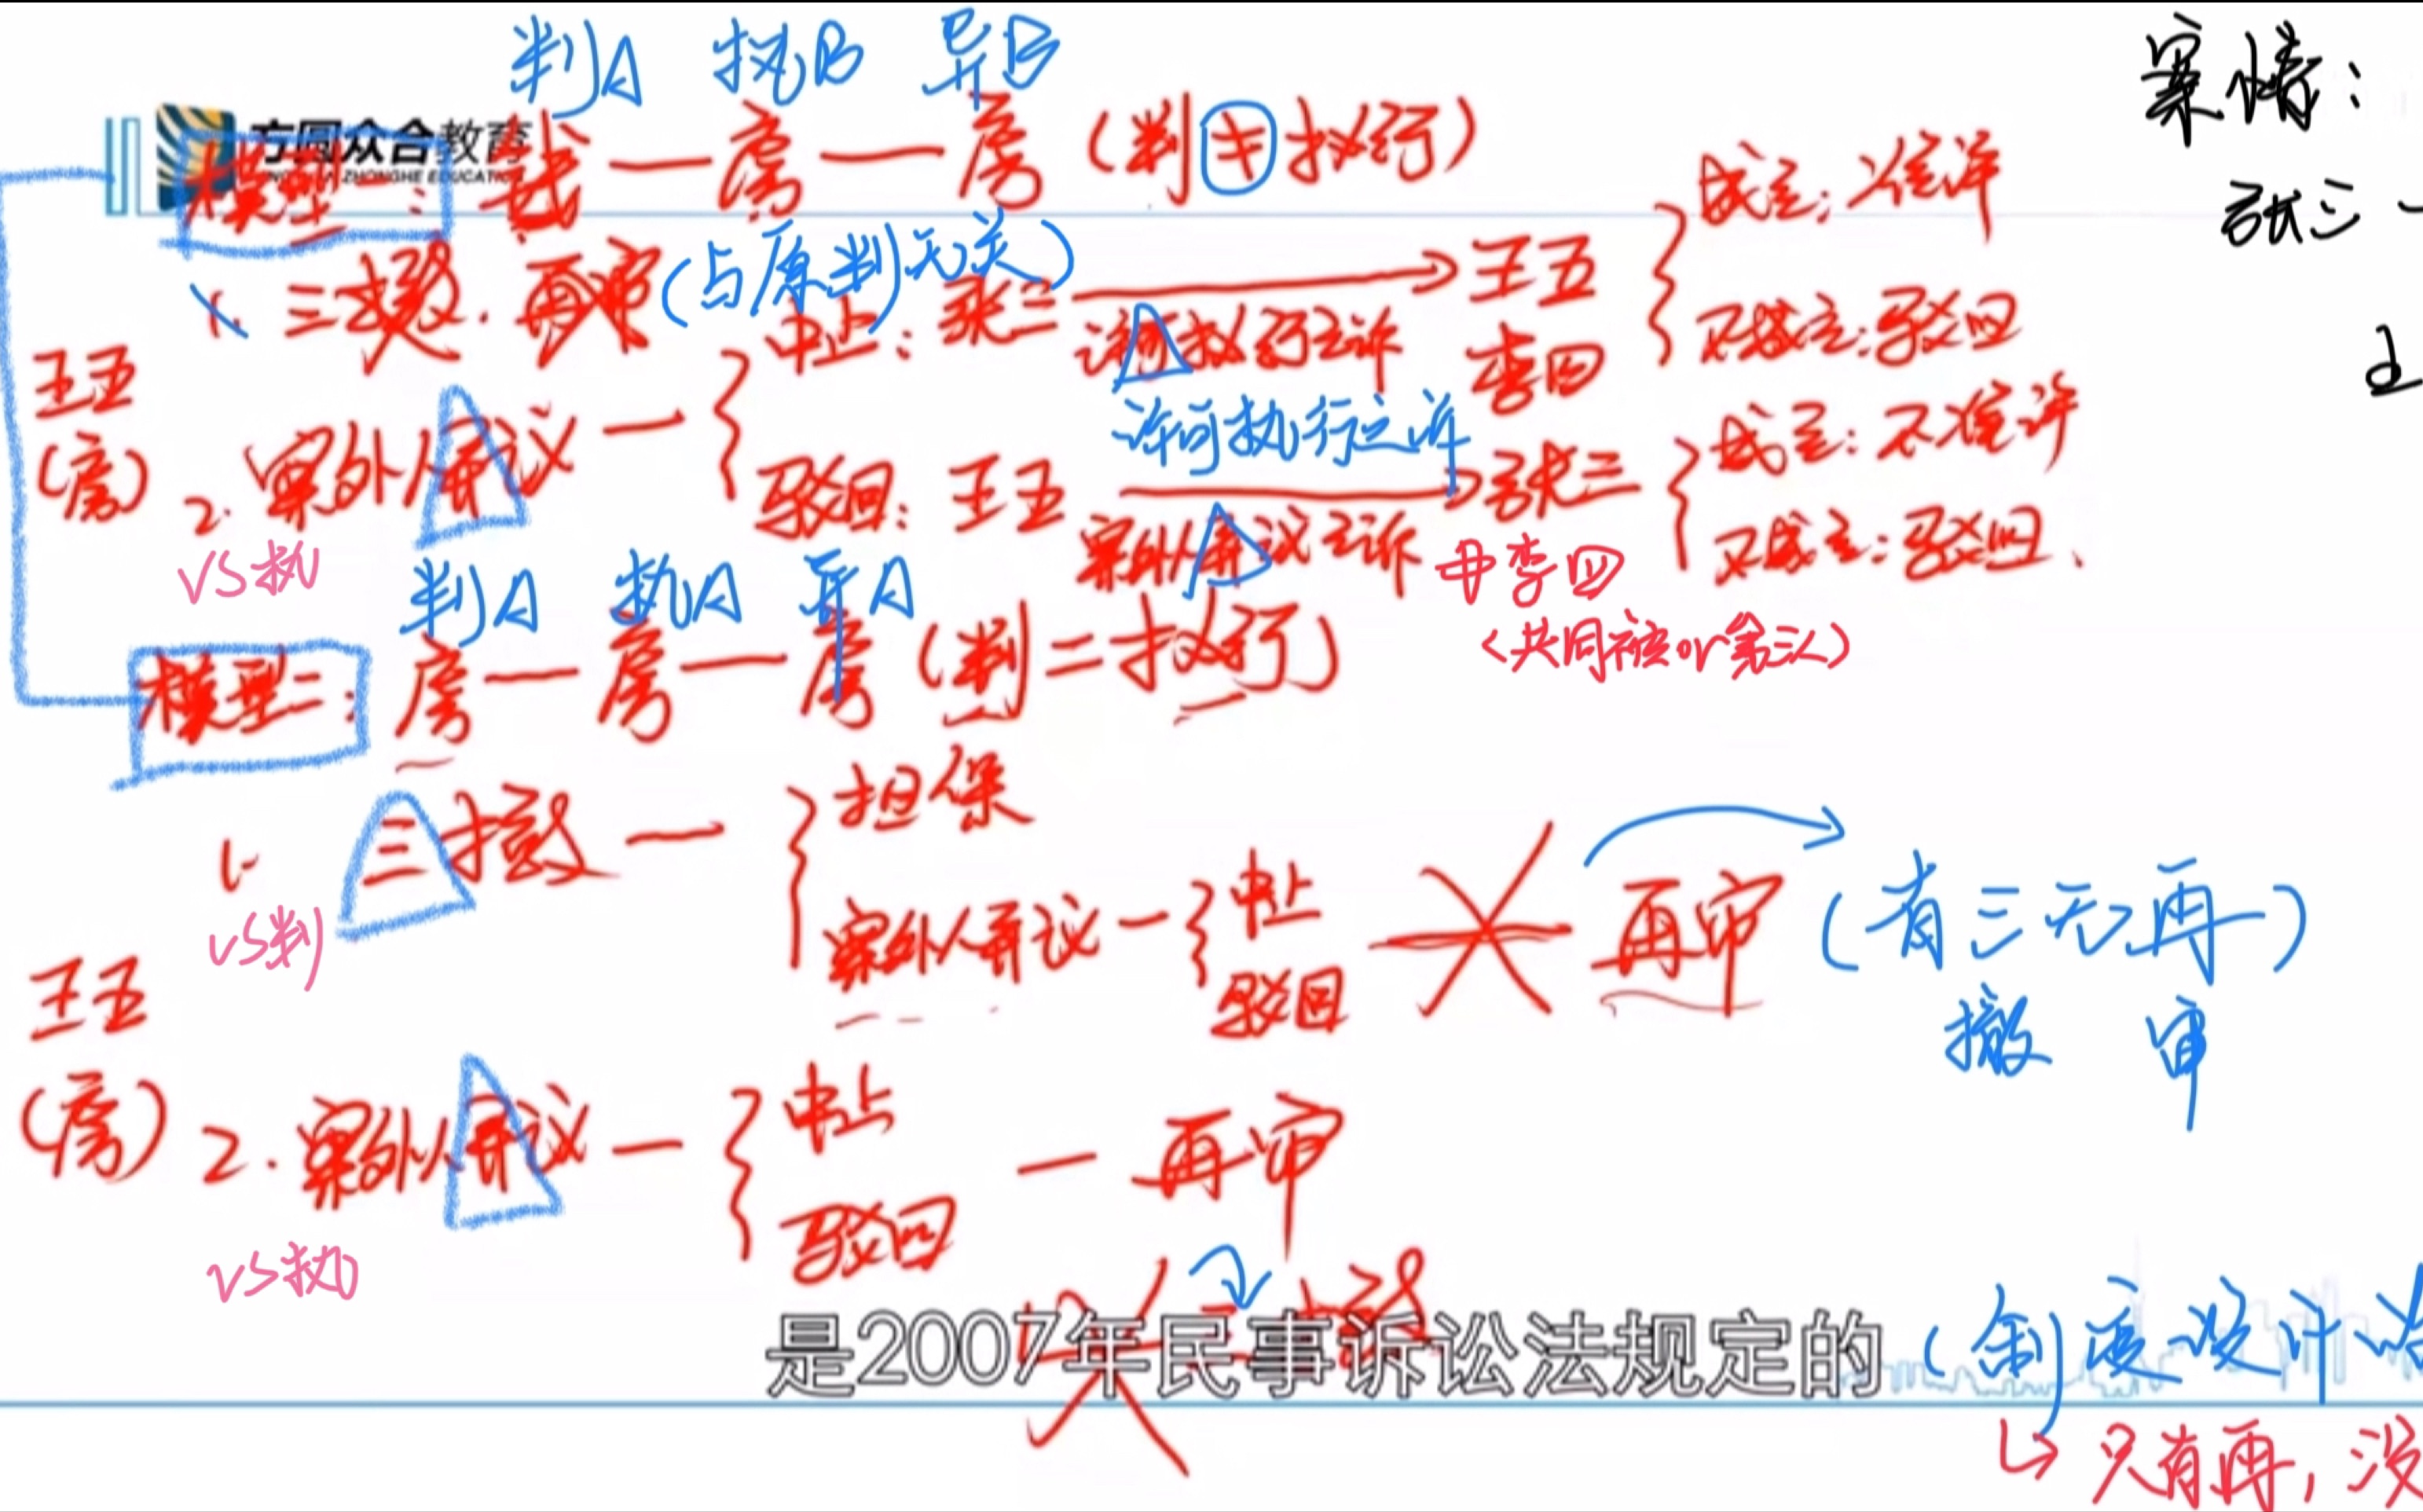 判A 执B 异B
案情：
方圆众合教育
模型一： 钱—房—房（判≠执行）
张三
1. 三撤、再审（与原判无关）
王五（房）
2. 案外人异议
中止：张三 → 王五 李四
许可执行之诉
成立：准许
不成立：驳回
许可执行之诉
驳回：王五 → 张三
案外人异议之诉
成立：不准许
不成立：驳回
VS执
+李四
（共同被or第三人）
判A 执A 异A
模型二： 房—房—房（判=执行）
1. 三撤—
担保
案外人异议—
中止
驳回
再审
（有三无再）
撤 审
VS判
王五（房）
2. 案外人异议—
中止
驳回
—再审
VS执
三撤
是2007年民事诉讼法规定的
（制度设计
↳只有再，没